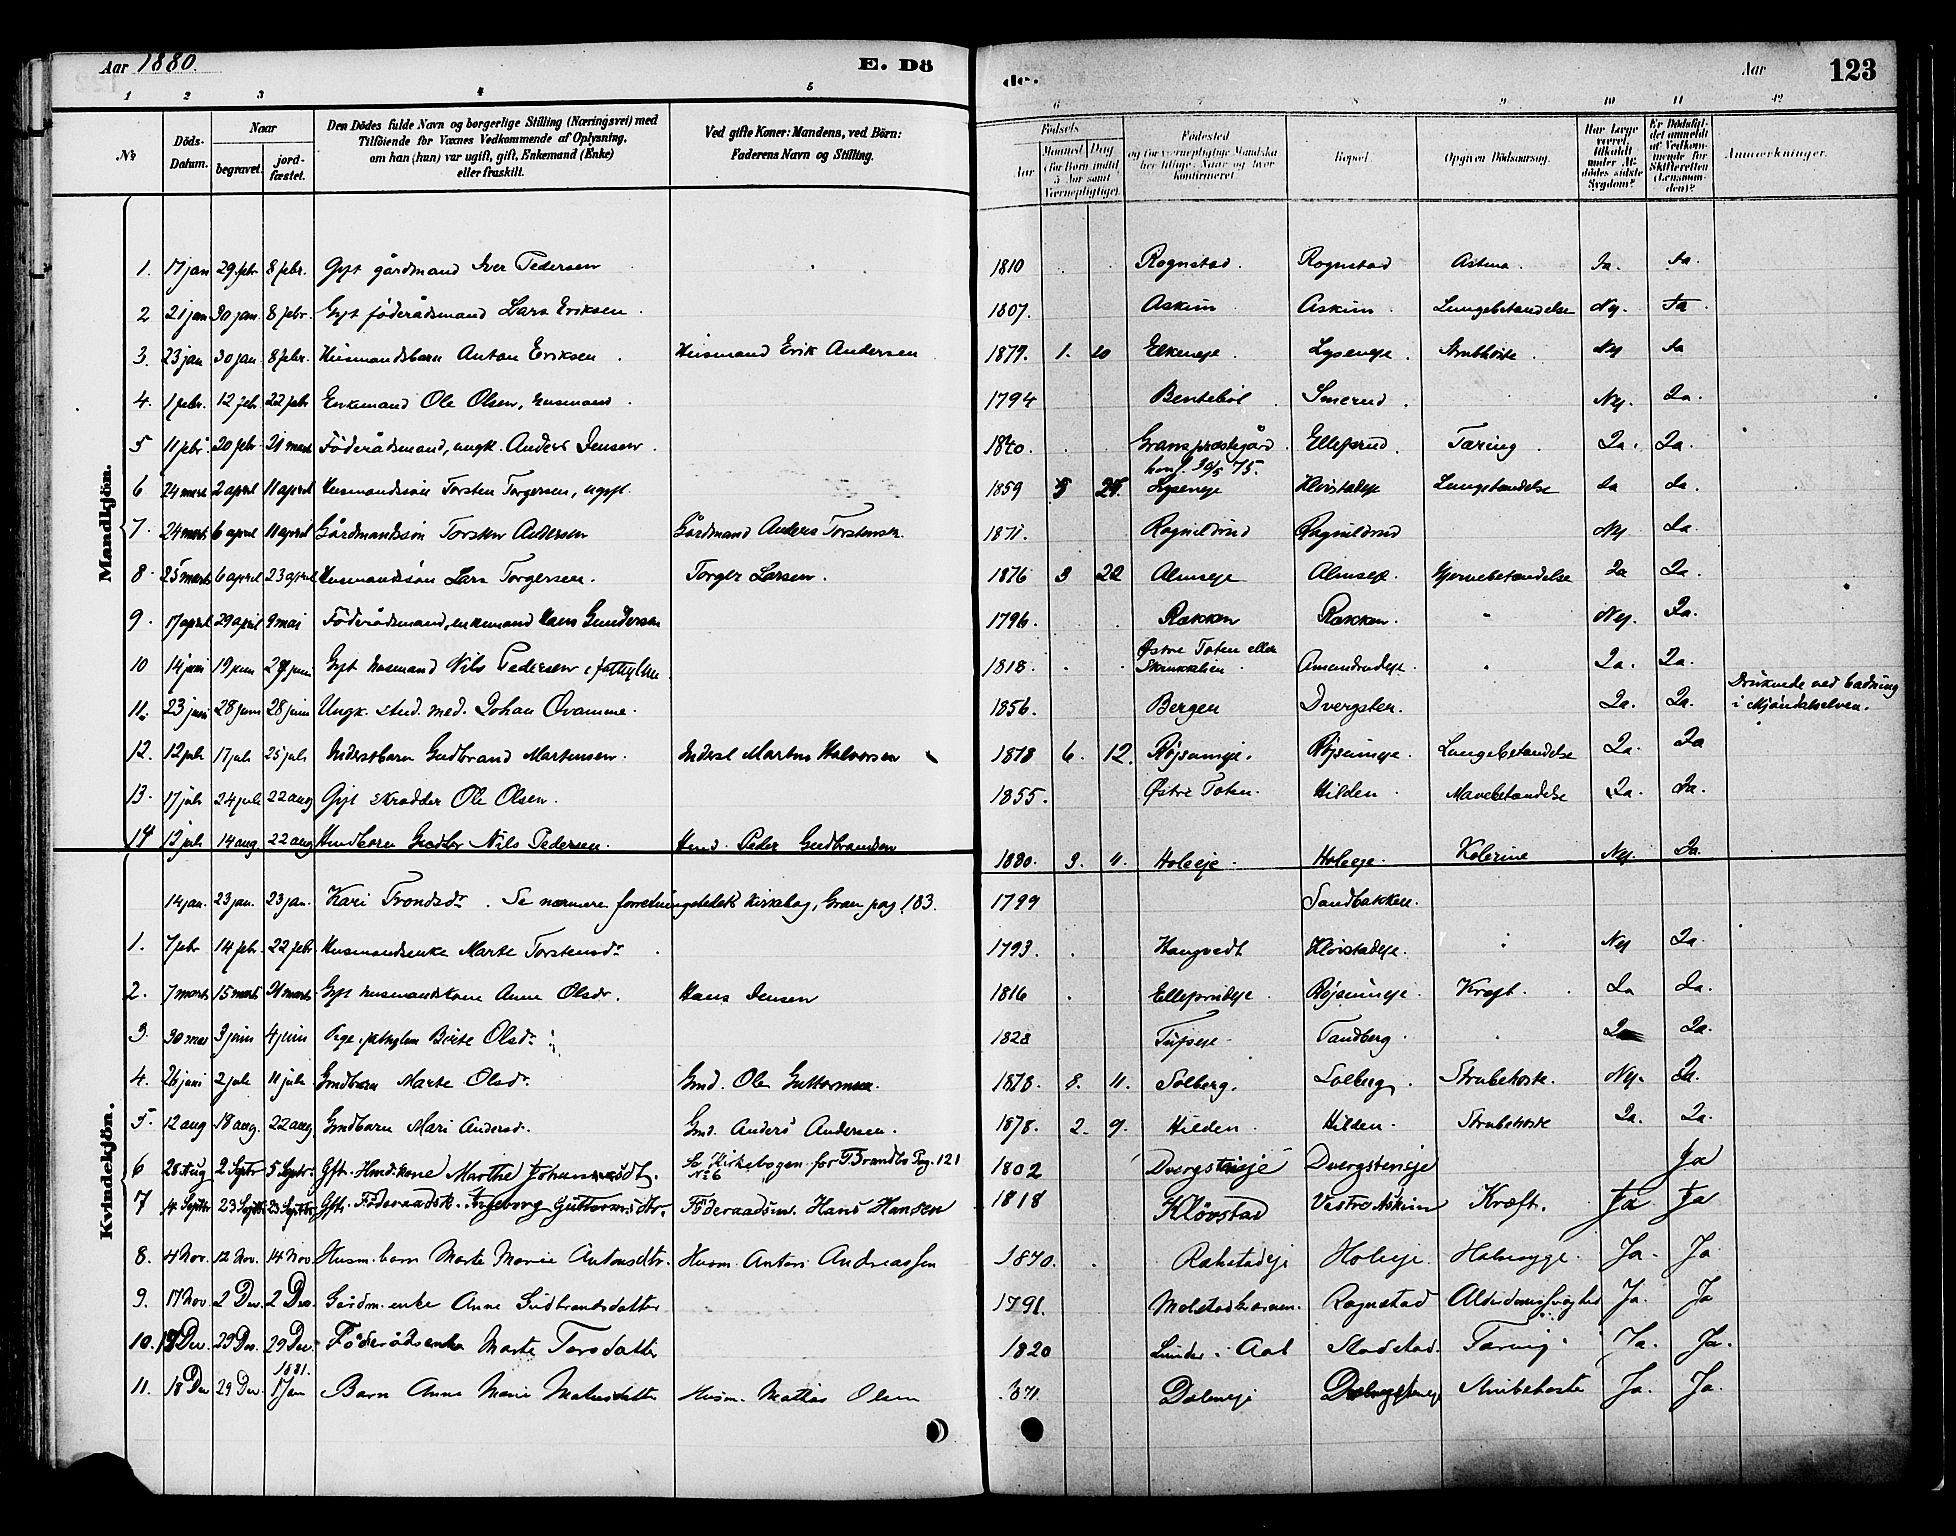 Aar 1880. E. Dö
de. Aar 123
1 2 3 4 5 6 7 8 9 10 11 12
No
Döds-Datum.
Naar
begravet.
jord-fæstet.
Den Dödes fulde Navn og borgerlige Stilling (Næringsvei) med
Tilföiende for Voxnes Vedkommende af Oplysning,
om han (hun) var ugift, gift, Enkemand (Enke)
eller fraskilt.
Ved gifte Koner: Mandens, ved Börn:
Faderens Navn og Stilling.
Födsels
Aar
Maaned Dag
(for Börn indtil
5 Aar samt
Værnepligtige).
Födested
og for værnepligtige Mandska-
ber tillige, Naar og hvor
konfirmeret.
Bopæl.
Opgiven Dödsaarsag.
Har Læge
været
tilkaldt
under Af-
dödes sidste
Sygdom?
Er Dödsfal-
det anmeldt
af Vedkom-
mende for
Skifteretten
(Lensman-
den)?
Anmærkninger.
Mandkjön.
1. 17 jan 29. febr 8 febr. Gift gårdmand Iver Pedersen 1810 Rognstad. Rognstad Astma. Ja. Ja.
2 21 jan 30 jan. 8 febr. Gift föderådsmand Lars Eriksen. 1807. Askim Askim. Lungebetændelse Nej. Ja
3. 23 jan 30 jan 8 febr. Husmandsbarn Anton Eriksen. Husmand Erik Andersen 1879. 1. 10 Elkeneje. Lyseneje. Strubhoste. Nej Ja
4. 1 febr. 12 feb 22 febr Enkemand Ole Olsen, husmand. 1794 Benteböl. Smerud. Nej. Ja.
5 11 febr. 20 febr. 21 mars Föderådsmand, ungk. Anders Jensen. 1840. Grans præstegård. Ellefsrud. Tæring Ja. Ja.
konf. 30/5 75.
6 24 mars 2 april 11 april Husmandssön Torsten Torgersen, ugift. 1859 5 25. Lyseneje Klövstadeje Lungebetændelse Ja Ja.
7. 24 mars 6 april 11 april Gårdmandssön Torsten Andersen Gårdmand Anders Torstensen. 1871. Rognildrud Ragnildrud Nej Ja.
8. 25 mars 6 april 23 april Husmandssön Lars Torgersen. Torger Larsen. 1876 3 22 Almseje Almseje. Hjernebetændelse Ja Ja.
9. 17 april 29 april 9 mai Föderådsmand, enkemand Hans Gundersen 1796. Rækken Rækken. " Nej. Ja.
10 14 juni 19 juni 27 juni Gift husmand Nils Pedersen, fattiglem. 1818. Østre Toten eller Skrukkelien. Amundrudeje. " Ja. Ja.
11. 23 juni 28 juni 28 juni Ungk. stud. med. Johan Qvamme. 1856. Bergen Dvergsten. Ja. Ja. Druknede ved badning
i Mjöndalselven.
12. 12 juli 17 juli 25 juli Inderstbarn Gudbrand Martinsen. Inderst Martin Halvorsen 1878 6. 12. Röjsumeje. Röjsumeje. Lungebetændelse Ja. Ja
13. 17 juli 24 juli 22 aug Gift skrædder Ole Olsen. 1855. Østre Toten. Hilden. Mavebetændelse Ja. Ja.
14 12 juli 14 aug 22 aug Nils Pedersen. Hmd. Peder Gudbrandsen 1880. 3. 11. Holeeje. Holeeje. Kolerine Nej. Ja.
Kvindekjön.
14 jan. 23 jan. 23 jan. Kari Trondsdr. Se nærmere forretningstedets kirkebog, Gran pag. 183. 1799 Sandbakken.
1. 7 febr 14 febr. 22 febr Husmandsenke Marte Torstensdr. 1793. Haugvedt Klövstadeje. Nej Ja.
2. 7 mars 15 mars 21 mars Gift husmandskone Anne Olsdr. Hans Jensen 1816 Ellefsrudeje. Röjsumeje. Kræft. Ja Ja.
3. 30 mai 3 juni 4 juni Pige, fattiglem Birte Olsdr. 1828 Tufseje. Tandberg. Ja Ja.
4. 26 juni 2 juli 11 juli Gmdbarn Marte Olsdr. Gmd. Ole Guttormsen. 1878. 8. 11. Solberg. Solberg. Strubehoste. Nej. Ja.
5. 12 aug 18 aug. 22 aug. Gmdbarn Mari Andersd. Gmd. Anders Andersen. 1878. 2. 9. Hilden. Hilden. Strubehoste Ja. Ja.
6 28 Aug 2 Septr 5 Septr. Gft. Hmd.kone Marthe Johannesdt. Se Kirkebogen for Brandbo Pag. 121 No 6 1802 Dvergsteneje Dvergsteneje Ja
7 14 Septbr 23 Septbr 23 Septbr. Gft. Föderaadsk. Ingeborg Guttormsdtr. Föderaadsm. Hans Hansen 1818 Klövstad Vestre Askim Kræft. Ja Ja
8. 4 Nov. 12 Nov. 14 Nov. Husm. barn Marte Marie Antonsdtr. Husm. Anton Andreassen 1870. Rakstadeje Holeeje. Halssyge. Ja. Ja
9. 17 Nov. 2 Dec. 2 Dec. Gårdm. enke Anne Gudbrandsdatter 1791. Molstadkvernen. Rognstad Alderdomssvaghed Ja. Ja
10. 19 Dec. 29 Dec. 29 Dec. Föderådsenke Marte Torsdatter 1820 Lunder i Aal Stadstad. Tæring. Ja. Ja.
1881.
11. 18 Dec 29 Dec 17 Jan Barn Anne Marie Matiasdatter Husm. Mathias Olsen 1871. Daleneje Strubehoste Ja. Ja.